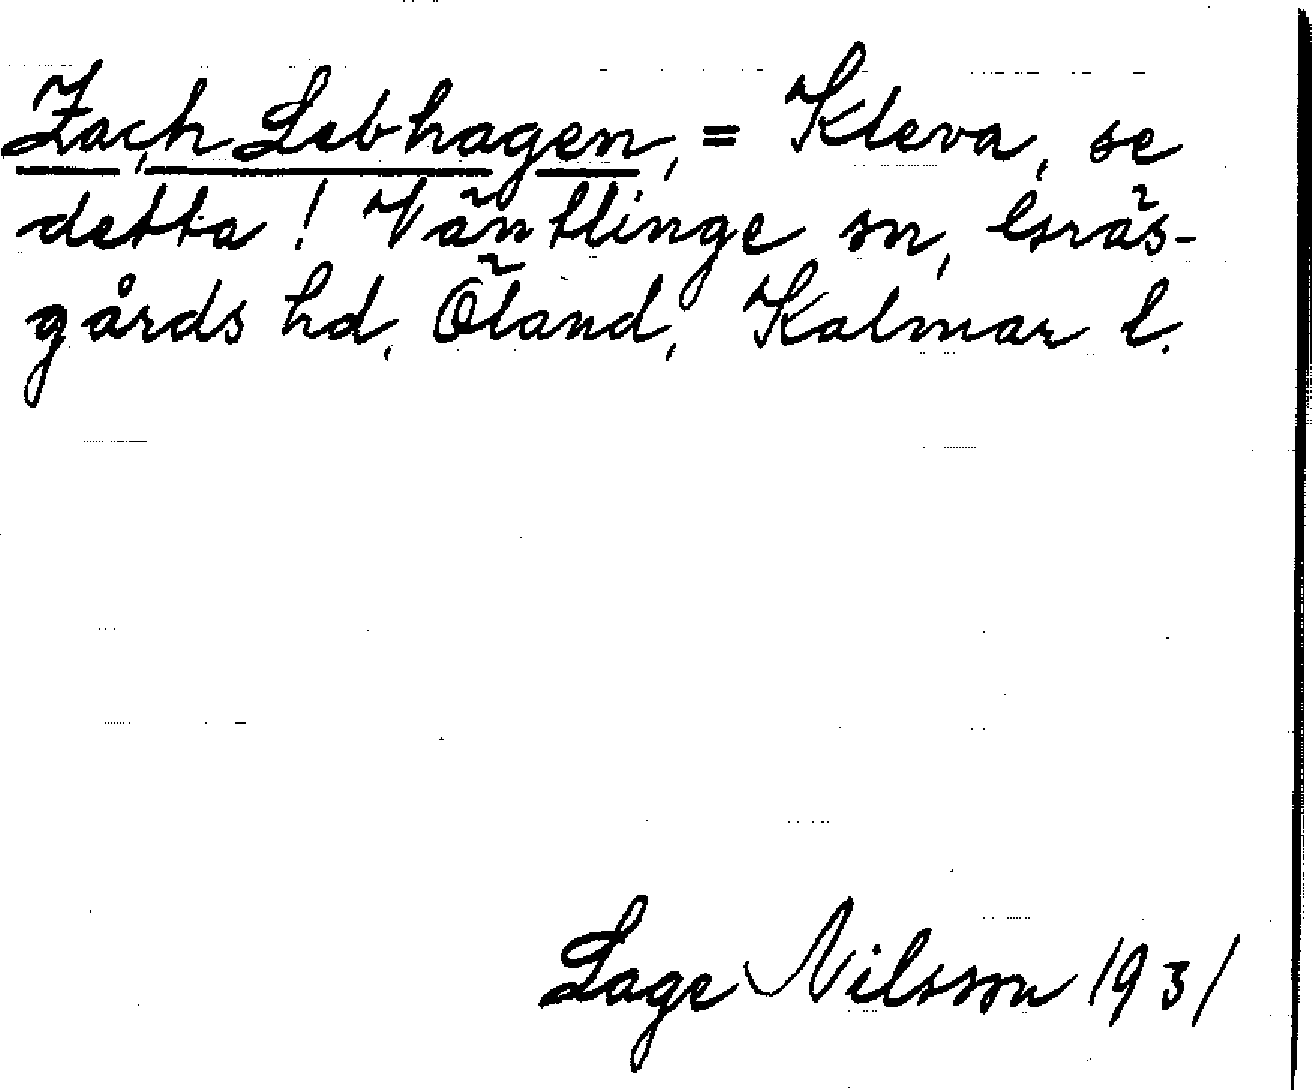 Zach Lebhagen, = Kleva, se
detta! Väntlinge sn, Gräs-
gårds hd, Öland, Kalmar l.
Lage Nilsson 1931